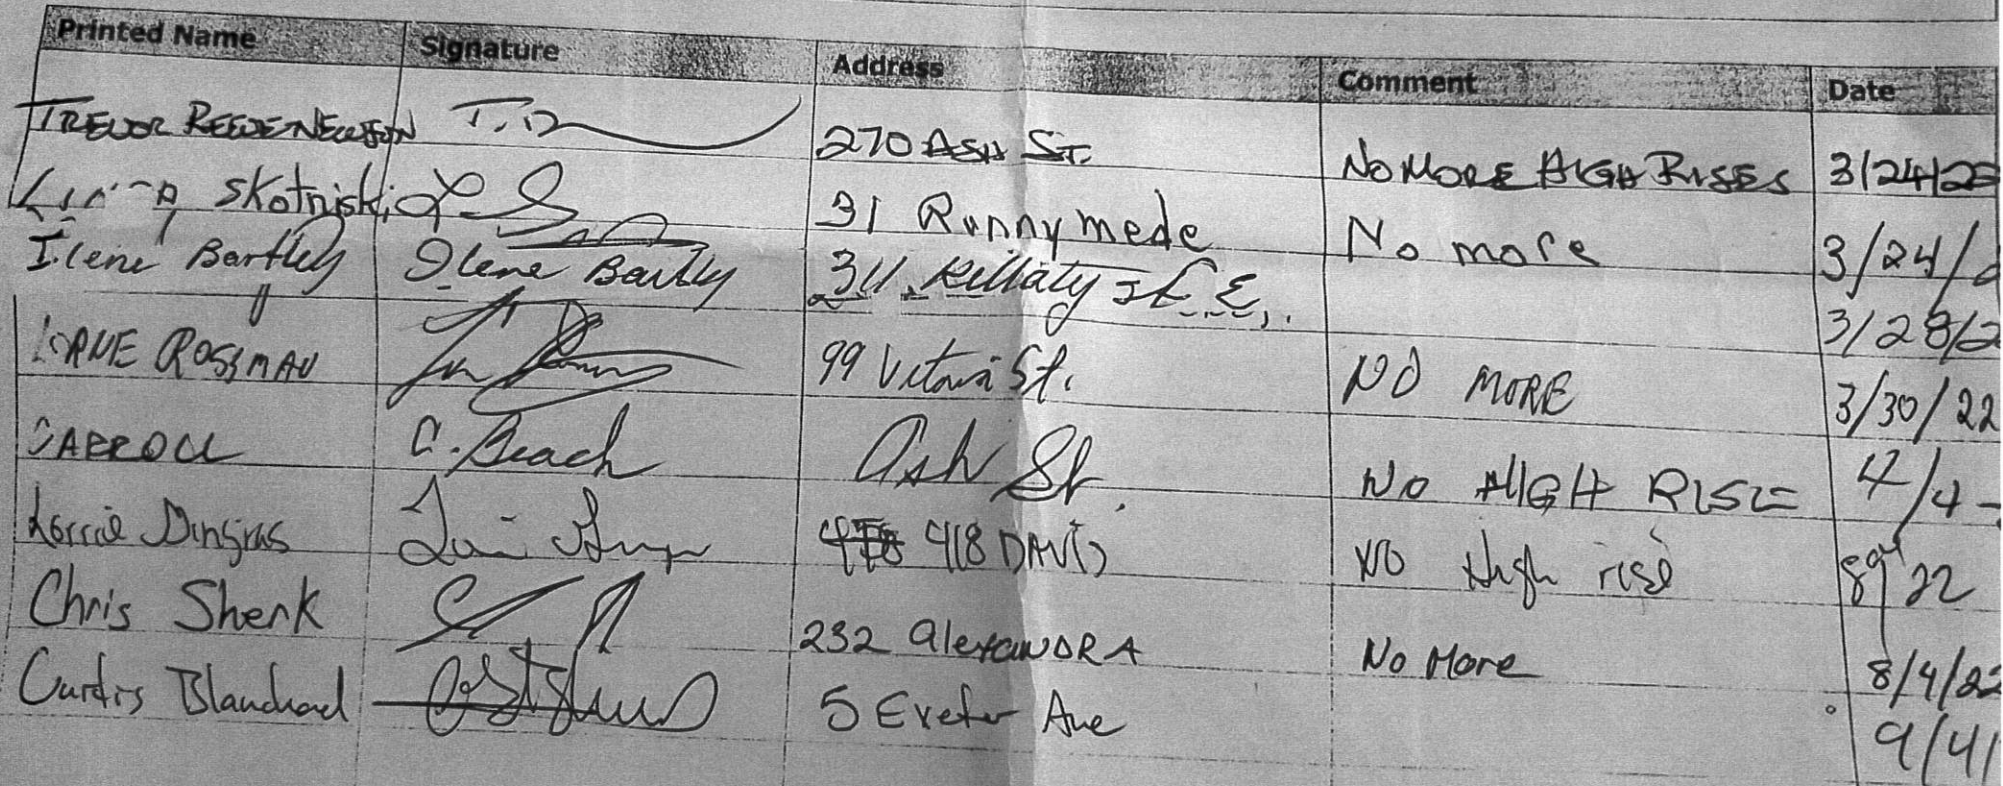 Printed Name Signature Address Comment Date
TREVOR 270 ASH ST. NO MORE HIGH RISES 3/24/22
Skotniski 31 Runnymede No more 3/24/
Ilene Bartley Ilene Bartley 311 St. E. 3/28/2
LORNE ROSSMAN 99 St. NO MORE 3/30/22
CARROLL C. Beach Ash St. NO HIGH RISE 4/4-
Lorrie Dingras 418 DAVIS NO High rise 22
Chris Shenk 232 AlexANDRA No More 8/4/22
Curtis Blanchard 5 Exeter Ave 9/4/